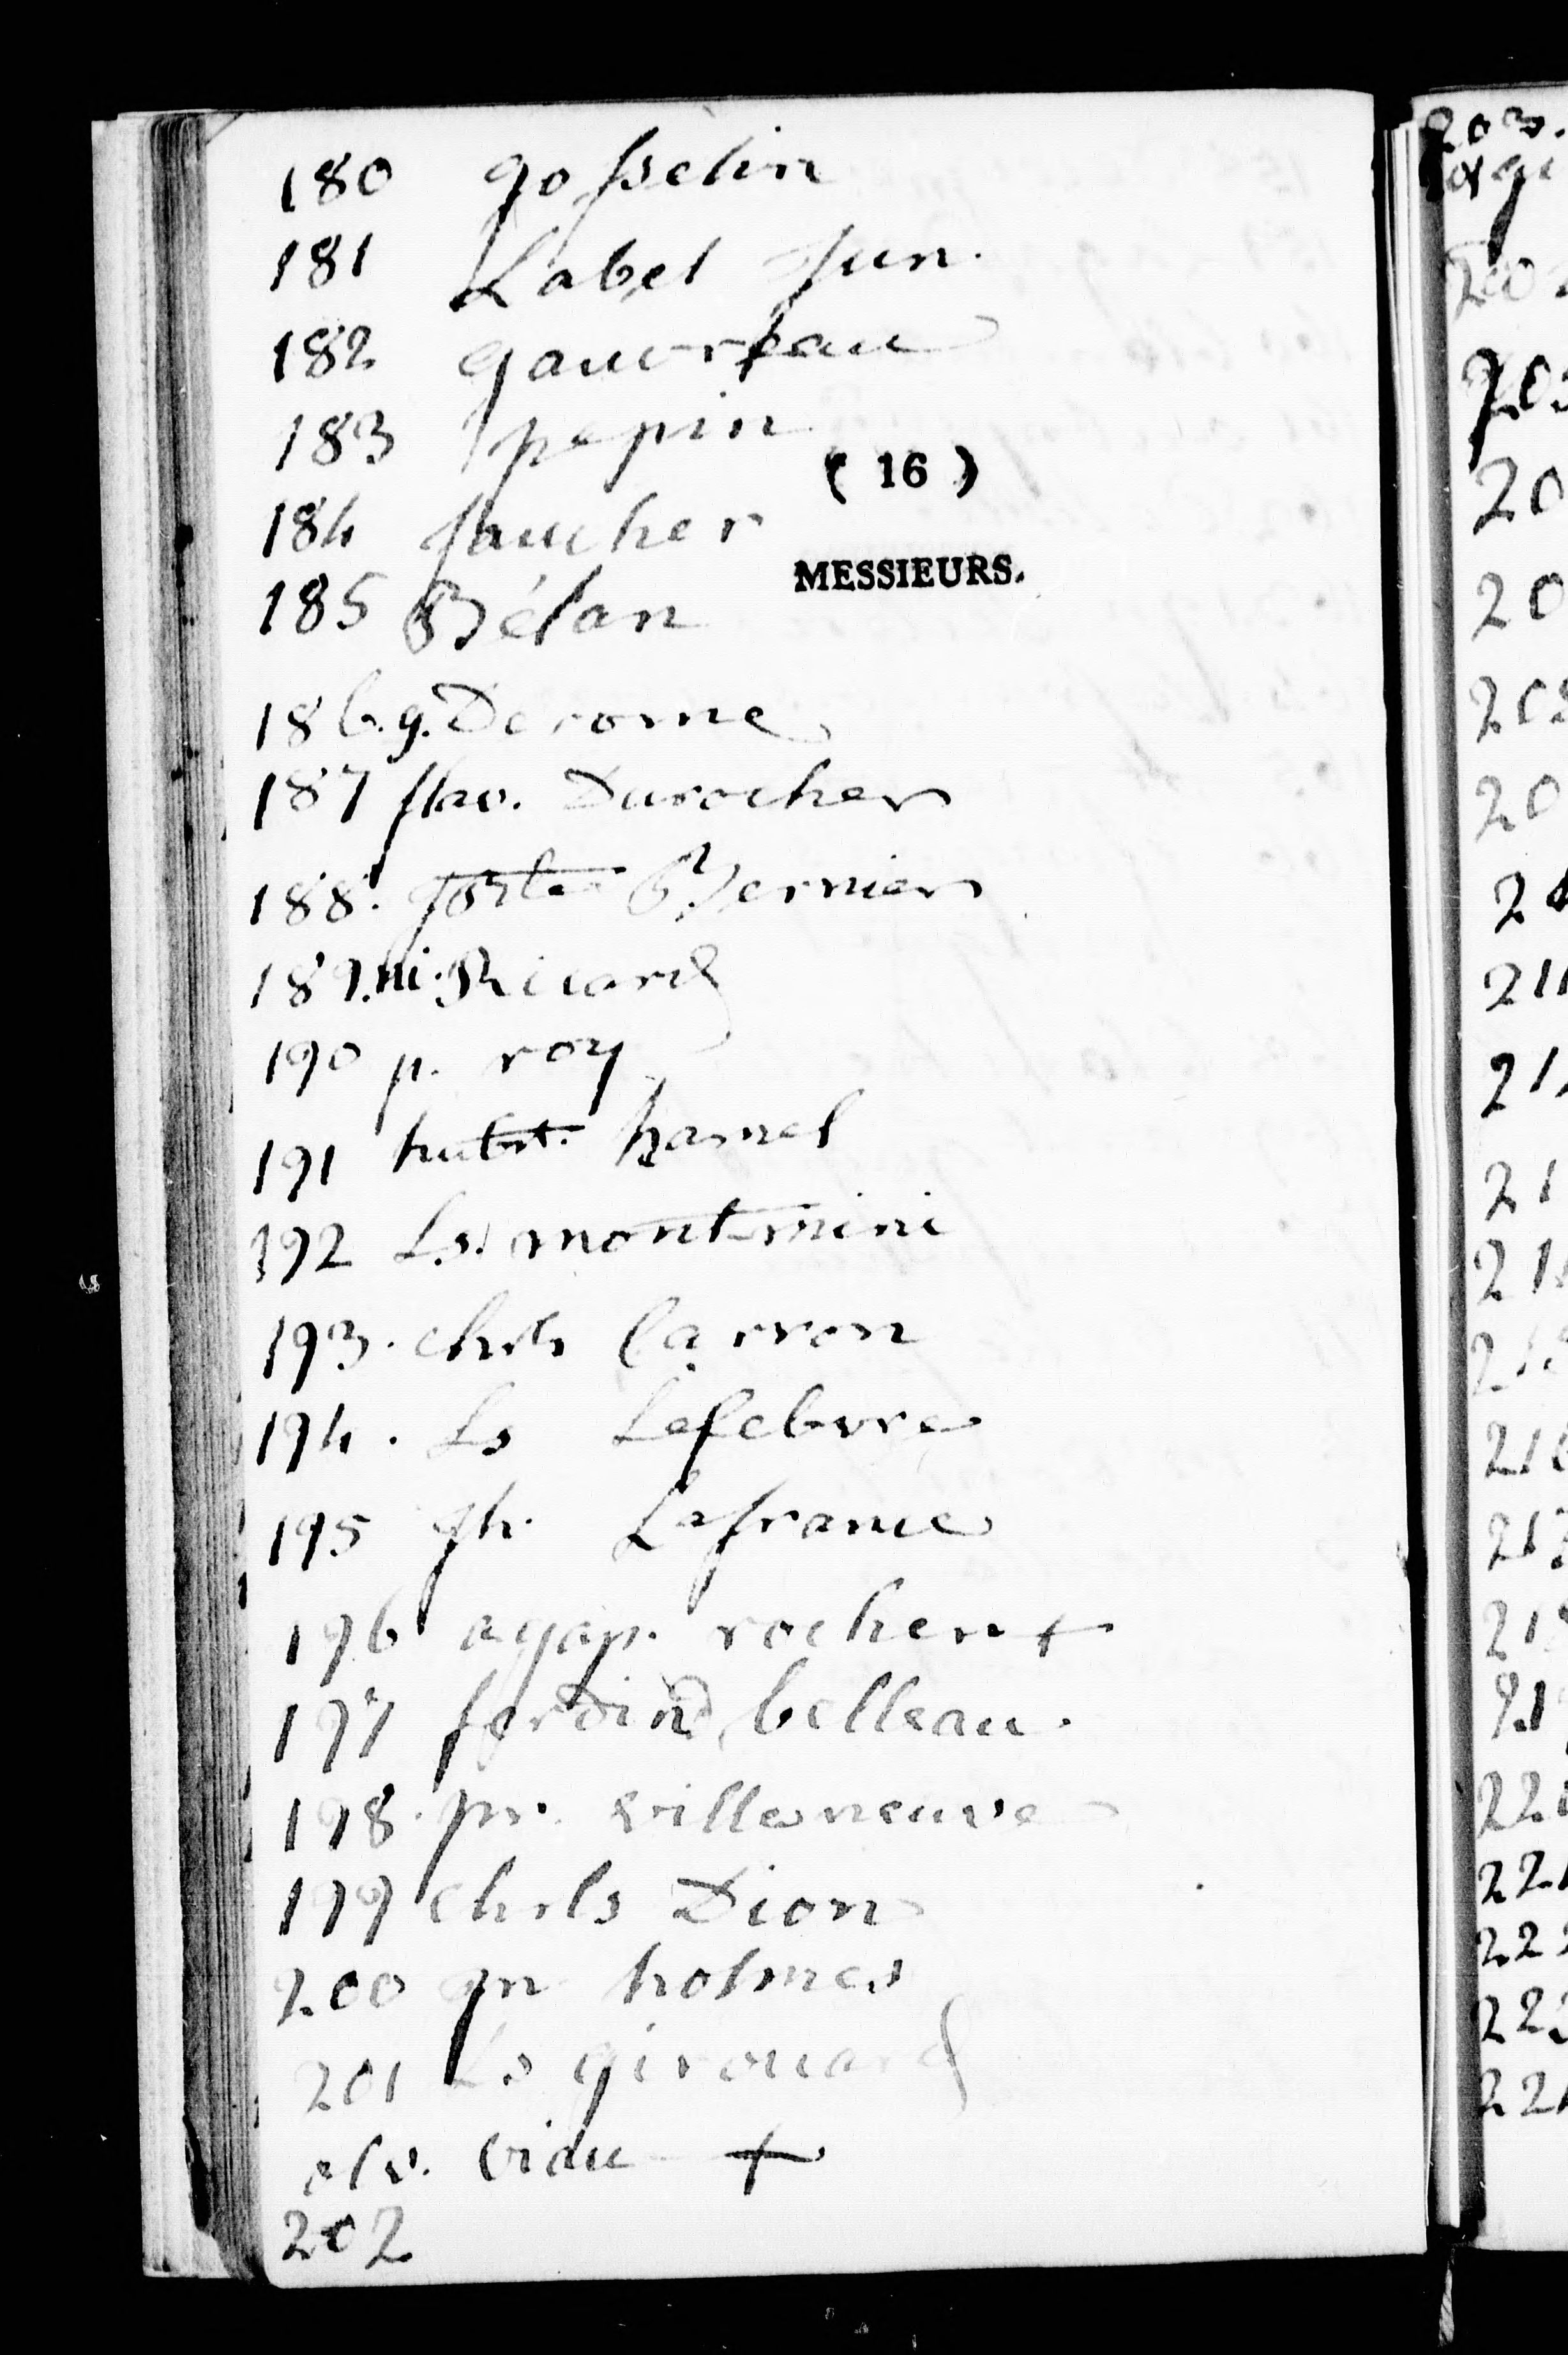 180 gosselin
181 Label Jun.
182 gauvreau
183 pepin
( 16 )
184 faucher
MESSIEURS.
185 Bélan
186. g. Derome
187 flav. Durocher
188. Bernier
189. m. Ricard
190 p. roy
191 hubt. hamel
192 Ls. montmini
193. chrls Carron
194. Ls Lefebvre
195 Jh. Lafrance
196 agap. rocher +
197 ferdind belleau.
198. pr. villeneuve
199 chrls Dion
200 Jn holmes
201 Ls girouard
olv. viau +
202